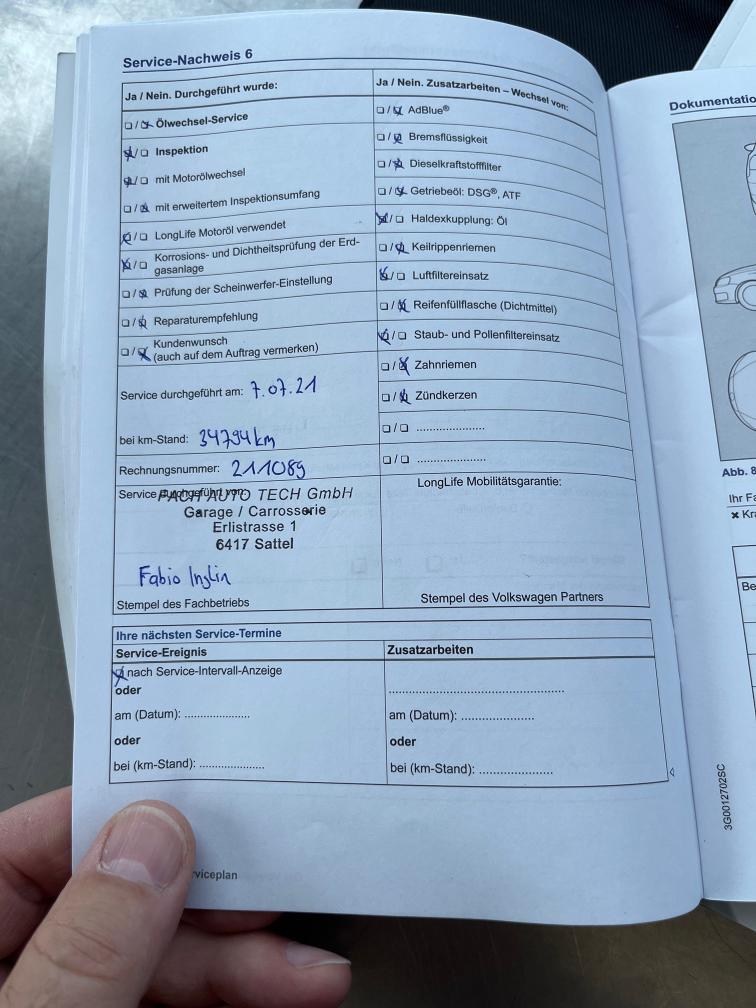 Service-Nachweis 6
Ja / Nein. Durchgeführt wurde:
☐ / ☒ Ölwechsel-Service
☒ / ☐ Inspektion
☒ / ☐ mit Motorölwechsel
☐ / ☒ mit erweitertem Inspektionsumfang
☒ / ☐ LongLife Motoröl verwendet
☒ / ☐ Korrosions- und Dichtheitsprüfung der Erd-
gasanlage
☐ / ☒ Prüfung der Scheinwerfer-Einstellung
☐ / ☒ Reparaturempfehlung
☐ / ☒ Kundenwunsch
(auch auf dem Auftrag vermerken)
Service durchgeführt am: 7.07.21
bei km-Stand: 34794 km
Rechnungsnummer: 211089
Service durchgeführt von:
FACH AUTO TECH GmbH
Garage / Carrosserie
Erlistrasse 1
6417 Sattel
Fabio Inglin
Stempel des Fachbetriebs
Ja / Nein. Zusatzarbeiten – Wechsel von:
☐ / ☒ AdBlue®
☐ / ☒ Bremsflüssigkeit
☐ / ☒ Dieselkraftstofffilter
☐ / ☒ Getriebeöl: DSG®, ATF
☒ / ☐ Haldexkupplung: Öl
☐ / ☒ Keilrippenriemen
☒ / ☐ Luftfiltereinsatz
☐ / ☒ Reifenfüllflasche (Dichtmittel)
☒ / ☐ Staub- und Pollenfiltereinsatz
☐ / ☒ Zahnriemen
☐ / ☒ Zündkerzen
☐ / ☐ ......................
☐ / ☐ ......................
LongLife Mobilitätsgarantie:
Stempel des Volkswagen Partners
Ihre nächsten Service-Termine
Service-Ereignis
☒ nach Service-Intervall-Anzeige
oder
am (Datum): .....................
oder
bei (km-Stand): .....................
Zusatzarbeiten
......................................................
am (Datum): .......................
oder
bei (km-Stand): .......................
viceplan
Dokumentatio
Abb. 8
Ihr Fa
✖ Kra
Be
3G0012702SC